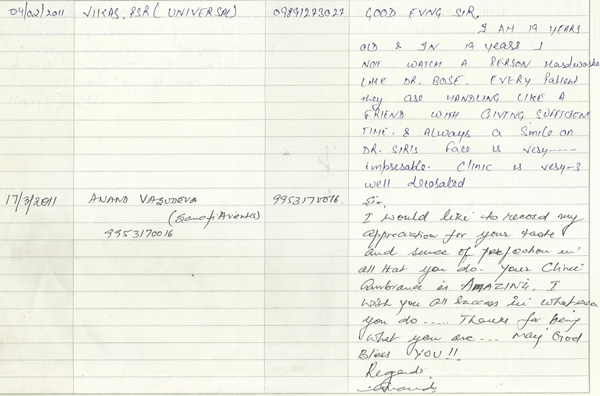 04/02/2011 VIKAS, PSR (UNIVERSAL) 09891273027 GOOD EVNG SIR,
I AM 19 YEARS
OLD & IN 19 YEARS I
NOT WATCH A PERSON Hardwork
LIKE DR. BOSE. EVERY Patient
they are HANDLING LIKE A
FRIEND WITH GIVING SUFFICIEN
TIME. & Always a Smile on
DR. SIR'S Face is very----
impresable. Clinic is very-3
well decorated
17/3/2011 ANAND VASUDEVA 9953170016. Sir,
(Sanofi Aventis)
9953170016
I would like to record my
appreciation for your taste
and sence of perfection in
all that you do. Your Clinic
Ambiance is AMAZING. I
Wish you all Success in whatever
you do ..... Thanks for being
what you are ... May God
Bless YOU!!
Regards
Anand